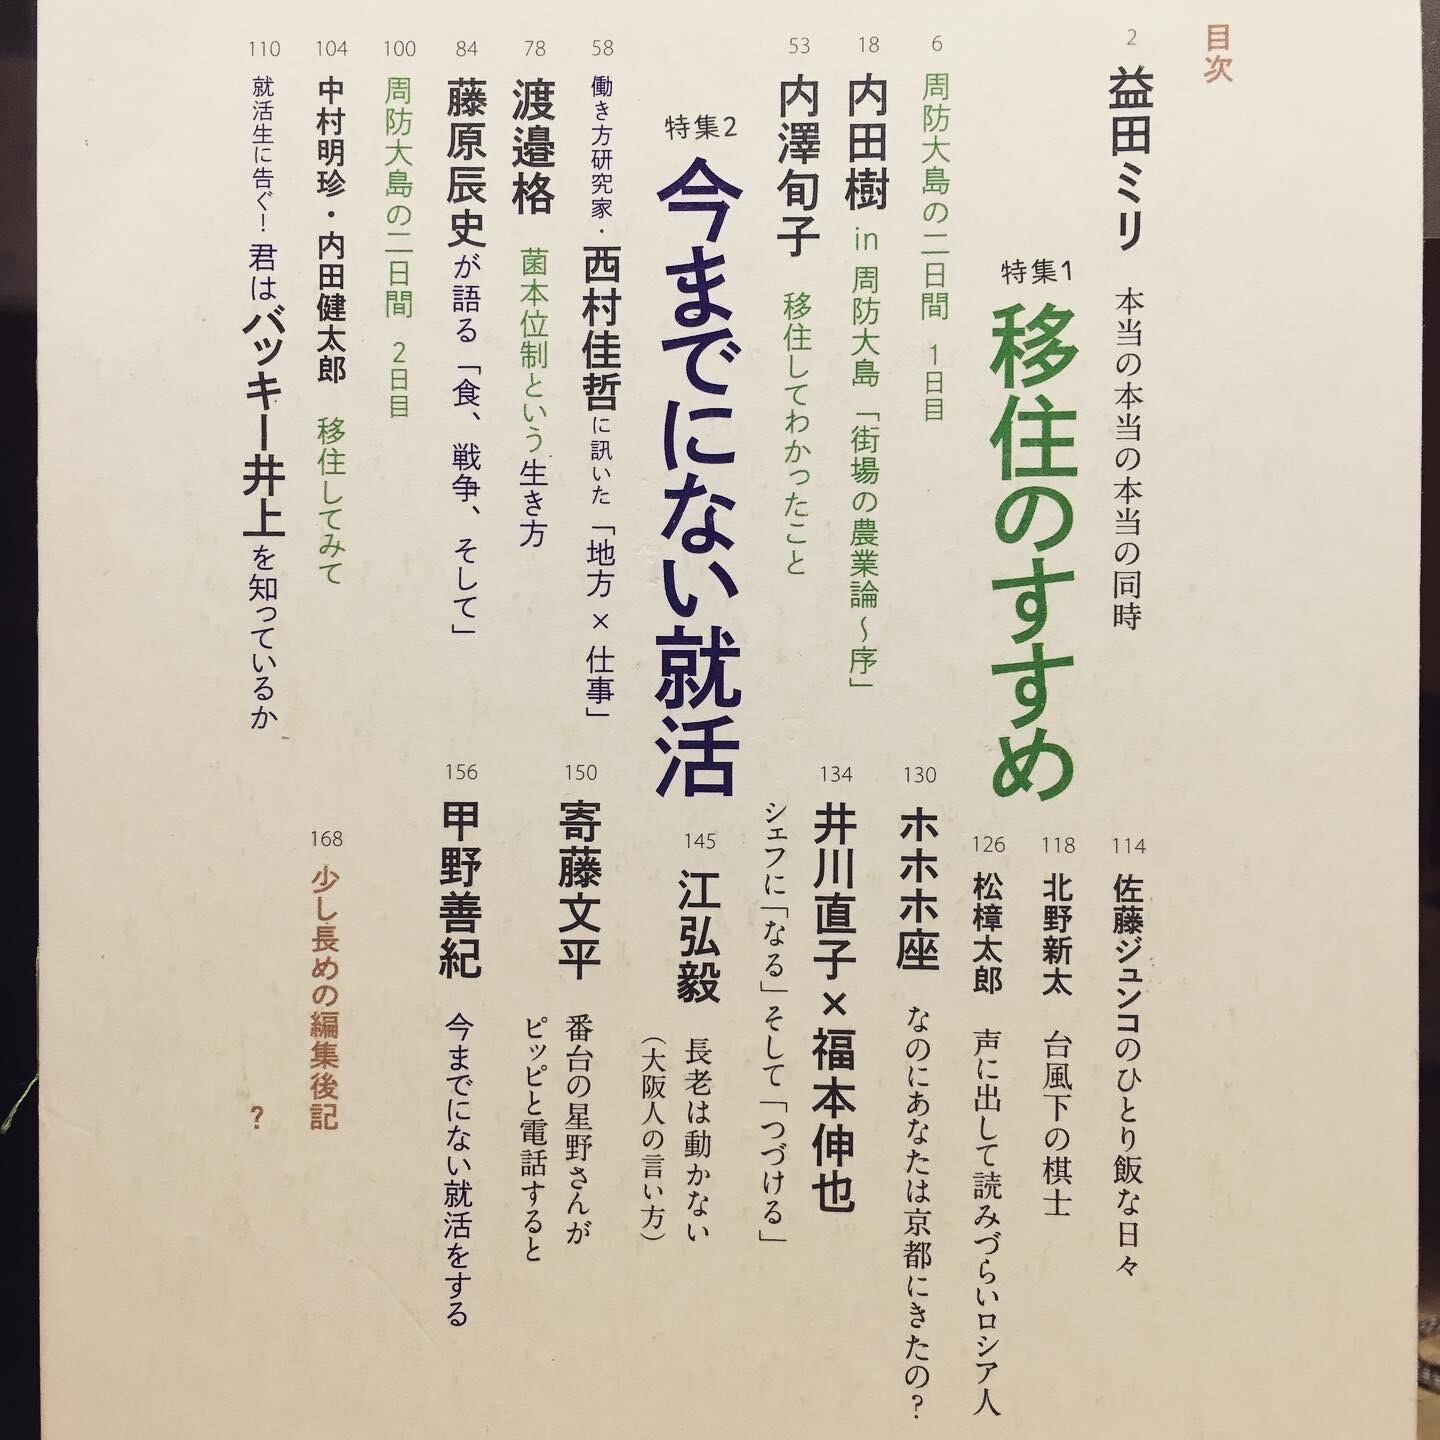 目次
2 益田ミリ 本当の本当の本当の本当の同時
特集1 移住のすすめ
6 周防大島の二日間 1日目
18 内田樹 in 周防大島「街場の農業論~序」
53 内澤旬子 移住してわかったこと
特集2 今までにない就活
58 働き方研究家・西村佳哲に訊いた「地方×仕事」
78 渡邉格 菌本位制という生き方
84 藤原辰史が語る「食、戦争、そして」
100 周防大島の二日間 2日目
104 中村明珍・内田健太郎 移住してみて
110 就活生に告ぐ!君はバッキー井上を知っているか
114 佐藤ジュンコのひとり飯な日々
118 北野新太 台風下の棋士
126 松樟太郎 声に出して読みづらいロシア人
130 ホホホ座 なのにあなたは京都にきたの?
134 井川直子×福本伸也
シェフに「なる」そして「つづける」
145 江弘毅 長老は動かない
(大阪人の言い方)
150 寄藤文平 番台の星野さんが
ピッピと電話すると
156 甲野善紀 今までにない就活をする
168 少し長めの編集後記
?